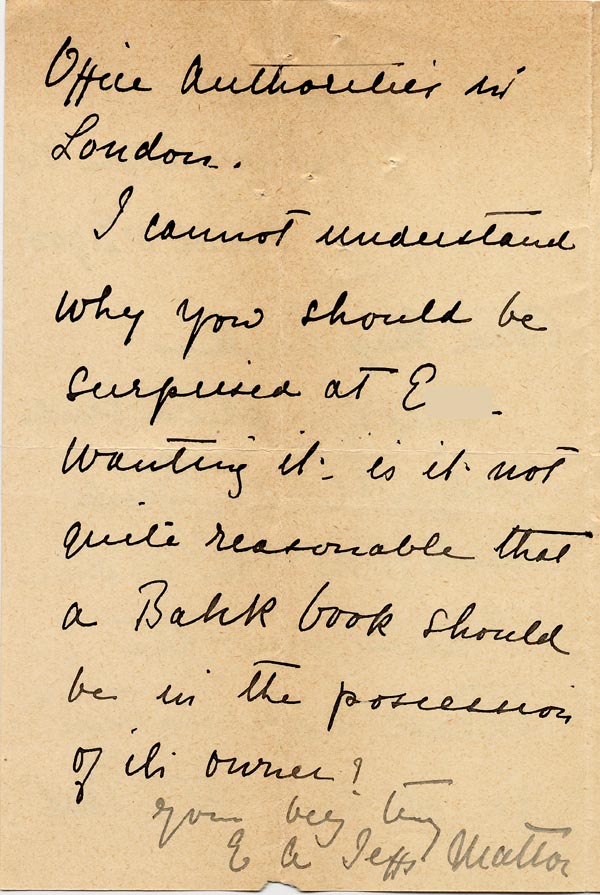 Office Authorities in
London.
I cannot understand
why you should be
surprised at E
wanting it - is it not
quite reasonable that
a Bank book should
be in the possession
of its owner?
Yours very truly
E A Jeffs Matron